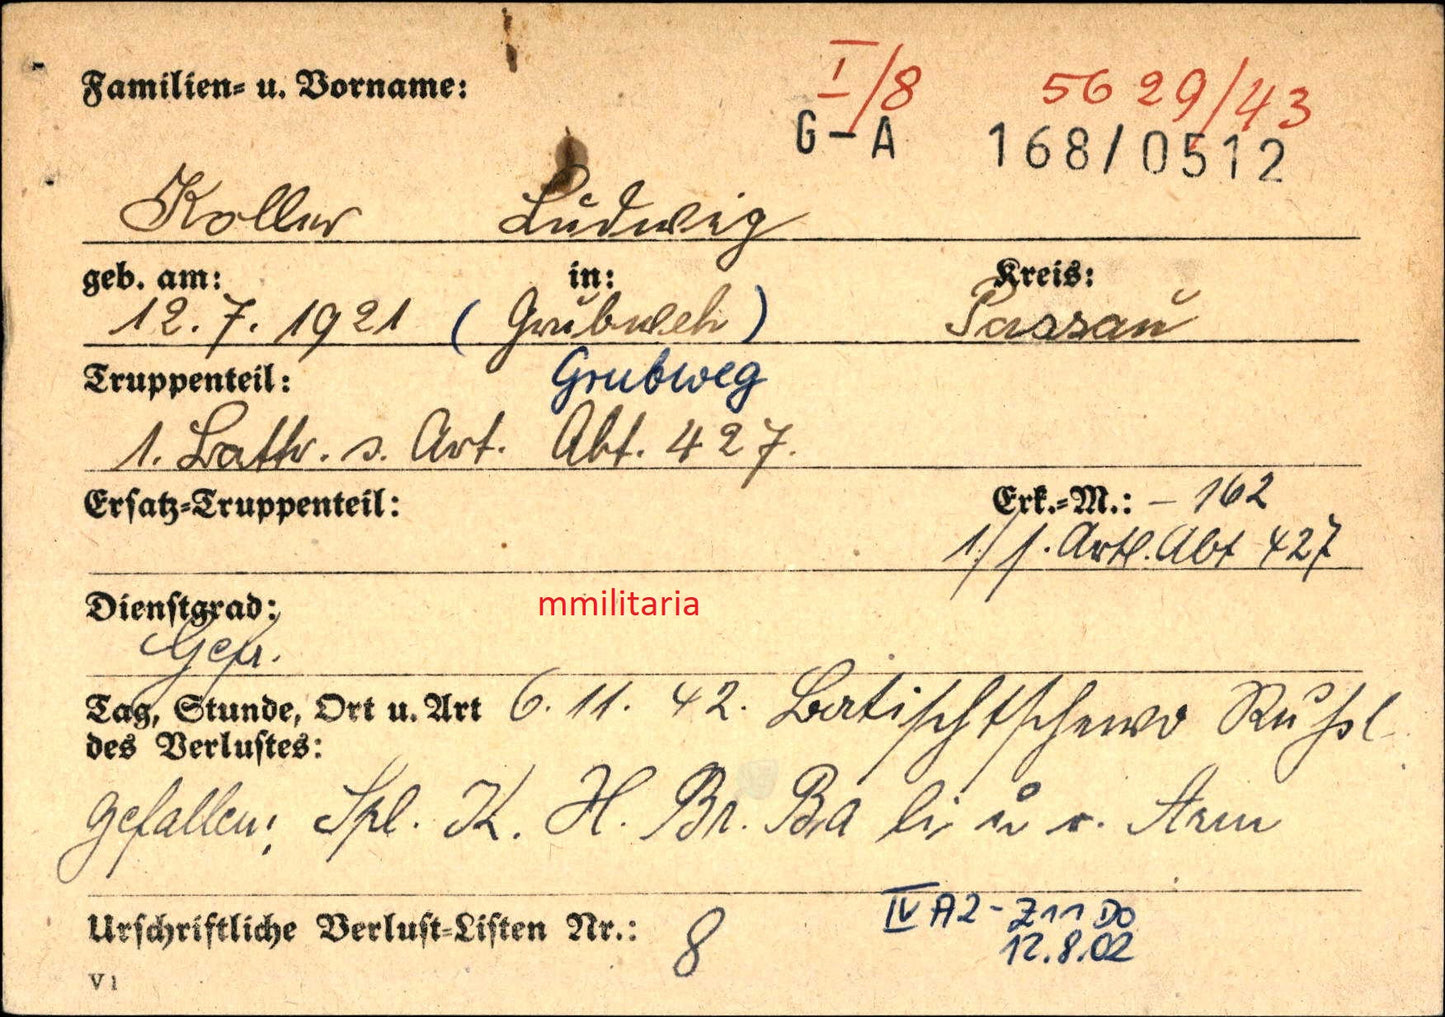 Familien- u. Vorname:
I/8 5629/43
G-A 168/0512
Koller Ludwig
geb. am: in: Kreis:
12.7.1921 (Grubweh) Passau
Truppenteil: Grubweg
1. Battr. s. Art. Abt. 427.
Ersatz-Truppenteil: Erk.-M.: – 162
1./s. Artl. Abt 427
Dienstgrad:
mmilitaria
Gefr.
Tag, Stunde, Ort u. Art 6. 11. 42. Batischtschewo Rußl
des Verlustes:
gefallen: Spl. K. H. Br. Ba li u r. Arm
Urschriftliche Verlust-Listen Nr.: 8
IV A2- Z11 Do
12.8.02
V 1